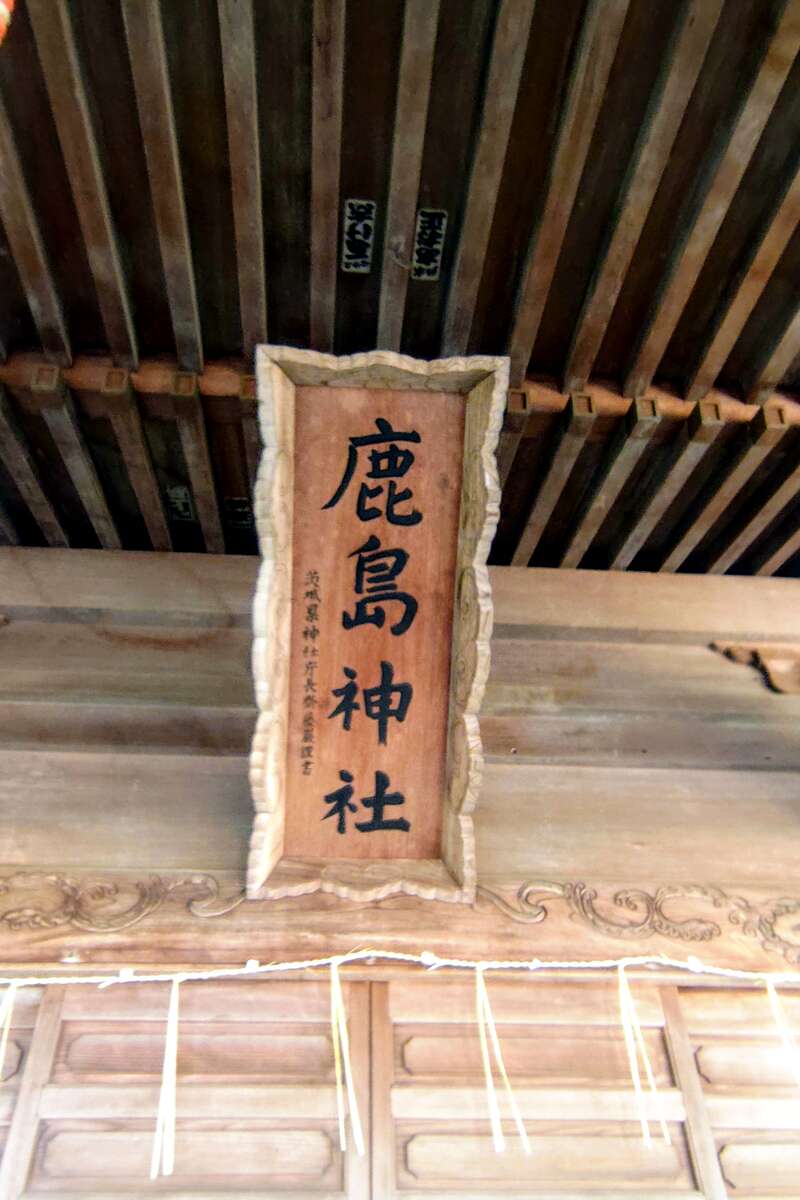 鹿島神社
茨城県神社庁長